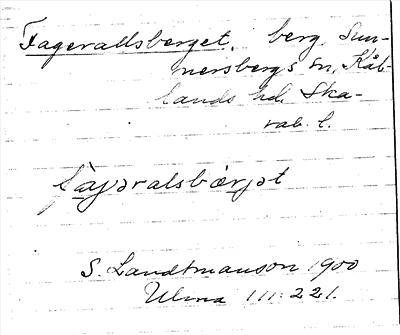 Fagerallsberget, berg Sun-
nersbergs sn, Kåk-
lands hd. Ska-
rab. l.
fàjəralsbærjət
S. Landtmanson 1900
Ulma III: 221.